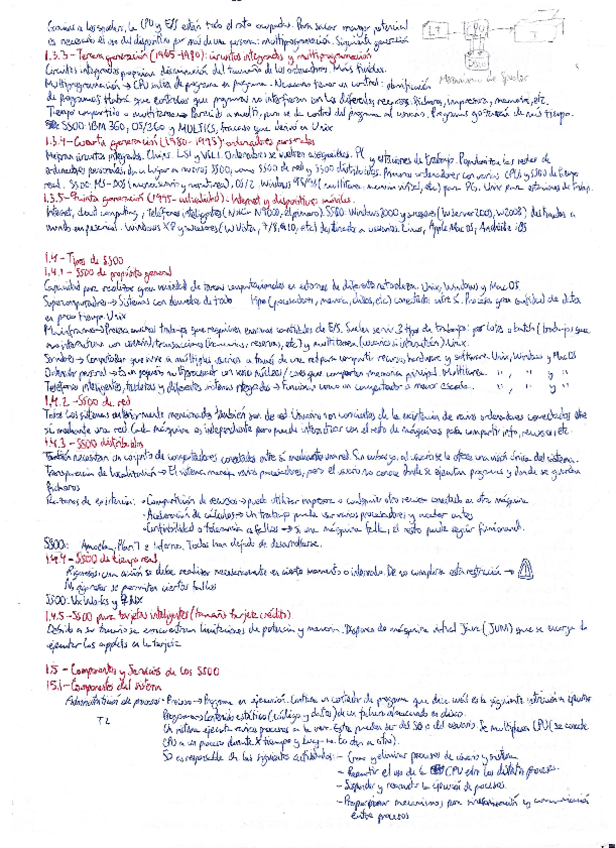 Gracias a los spoolers, la CPU y E/S están todo el rato ocupadas. Para sacar mayor potencial
es necesario el uso del dispositivo por más de una persona: multiprogramación. Siguiente generación
1.3.3- Tercera generación (1965-1980): circuitos integrados y multiprogramación
Circuitos integrados disminución del tamaño de los ordenadores. Más fiables.
Multiprogramación → CPU salta de programa en programa. Necesario tener un control: planificación
Mecanismo de Spooler
de programas. Habrá que controlar que programas no interfieran con los diferentes recursos. Ficheros, impresora, memoria, etc.
Tiempo compartido o multitarea → Parecido a multi, pero se da control del programa al usuario.
SSOO: IBM 360, OS/360 y MULTICS, fracaso que derivó en Unix
1.3.4- Cuarta generación (1980-1995): ordenadores personales
Mejoran circuitos integrados. Chips LSI y VLSI. Ordenadores se vuelven asequibles. PC y estaciones de trabajo. Popularizan las redes de
ordenadores personales, da lugar a nuevos SSOO, como SSOO de red y SSOO distribuidos. Primeros ordenadores con varias CPUs y SSOO de tiempo
real. SSOO: MS-DOS (monousuario y monotarea), OS/2, Windows 95/98 (multitarea, memoria virtual, etc) para PC. Unix para estaciones de trabajo.
1.3.5- Quinta generación (1995-actualidad): Internet y dispositivos móviles.
Internet, cloud computing, Teléfonos inteligentes (Nokia N9000, el primero). SSOO: Windows 2000 y sucesores (W server 2003, W2008) destinados a
Windows XP y sucesores (W Vista, 7/8, 10, etc) destinado a usuarios. Linux, Apple Mac OS, Android e iOS
1.4- Tipos de SSOO
1.4.1- SSOO de propósito general
Capacidad para realizar gran variedad de tareas computacionales en entornos de diferente naturaleza. Unix, Windows y Mac OS.
Supercomputadores → Sistemas con decenas de todo tipo (procesadores, memoria, discos, etc) conectados entre sí. Procesa gran cantidad de datos
en poco tiempo. Unix
Mainframe → Procesa muchos trabajos que requieren enormes cantidades de E/S. Suelen servir 3 tipos de trabajo: por lotes o batch (trabajos que
no interactúan con usuario), transacciones (bancarias, reservas, etc) y multitarea (usuarios e información). Unix.
Servidores → Computador que sirve a múltiples usuarios a través de una red para compartir recursos hardware y software. Unix, Windows y Mac OS
Ordenador personal → Es un pequeño multiprocesador con varios núcleos/cores que comparten memoria principal. Multitarea. " , " y "
Teléfonos inteligentes, tabletas y diferentes sistemas integrados → Funcionan como un computador a menor escala. " , " y "
1.4.2- SSOO de red
Todos los sistemas anteriormente mencionados también son de red. Usuarios son conscientes de la existencia de varios ordenadores conectados entre
sí mediante una red. Cada máquina es independiente pero puede interactuar con el resto de máquinas para compartir info, recursos, etc.
1.4.3- SSOO distribuidos
También necesitan un conjunto de computadores conectados entre sí mediante una red. Sin embargo, al usuario se le ofrece una visión única del sistema.
Transparencia de localización → El sistema maneja varios procesadores, pero el usuario no conoce donde se ejecutan programas y donde se guardan
ficheros
Razones de existencia: · Compartición de recursos → puede utilizar impresora o cualquier otro recurso conectado en otra máquina
· Aceleración de cálculos → Un trabajo puede usar varios procesadores y acabar antes
· Confiabilidad o tolerancia a fallos → Si una máquina falla, el resto puede seguir funcionando.
SSOO: Amoeba, Plan 9 e Inferno. Todos han dejado de desarrollarse.
1.4.4- SSOO de tiempo real
Rigurosos: una acción se debe realizar necesariamente en cierto momento o intervalo. De no cumplirse esta restricción →
No rigurosos: se permiten ciertos fallos
SSOO: VxWorks y QNX
1.4.5- SSOO para tarjetas inteligentes (tamaño tarjeta crédito)
Debido a su tamaño se encuentran limitaciones de potencia y memoria. Dispone de máquina virtual Java (JVM) que se encarga de
ejecutar los applets en la tarjeta
1.5- Componentes y Servicios de los SSOO
1.5.1- Componentes del sistema
Administración de procesos · Proceso → Programa en ejecución. Contiene un contador de programa que dice cuál es la siguiente instrucción a ejecutar
Programa → Contenido estático (código y datos) de un fichero almacenado en disco.
Un sistema ejecuta varios procesos a la vez. Estos pueden ser del SO o del usuario. Se multiplexa CPU (se concede
CPU a un proceso durante X tiempo y luego se lo dan a otro).
SO es responsable de las siguientes actividades: - Crear y eliminar procesos de usuario y sistema
- Repartir el uso de la CPU entre los distintos procesos.
- Suspender y reanudar la ejecución de procesos.
- Proporcionar mecanismos para sincronización y comunicación
entre procesos